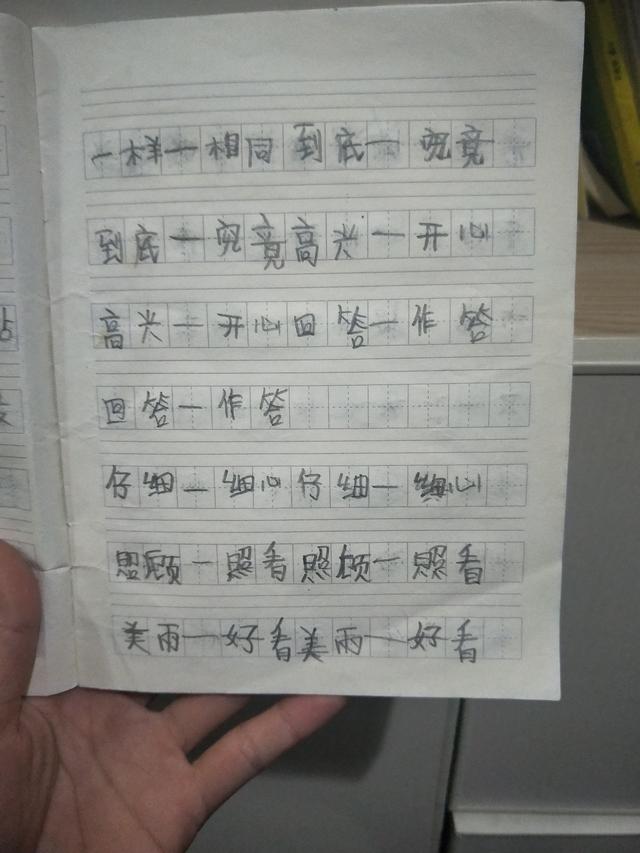 一样一相同 到底一 究竟
到底一究竟高兴一开心
高兴一开心回答一作答
回答一作答
仔细一细心仔细一细心
照顾一照看照顾一照看
美雨一好看美雨一好看